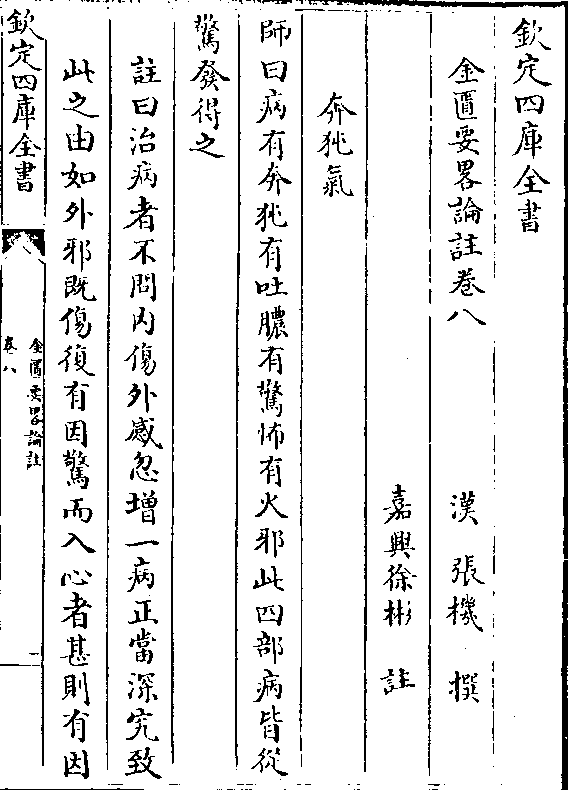 欽定四庫全書
金匱要畧論註卷八
漢 張機 撰
嘉興徐彬 註
奔㹠氣
師曰病有奔㹠有吐膿有驚怖有火邪此四部病皆從
驚發得之
註曰治病者不問内傷外感忽增一病正當深究致
此之由如外邪既傷復有因驚而入心者甚則有因
欽定四庫全書
金匱要畧論註
卷八
一